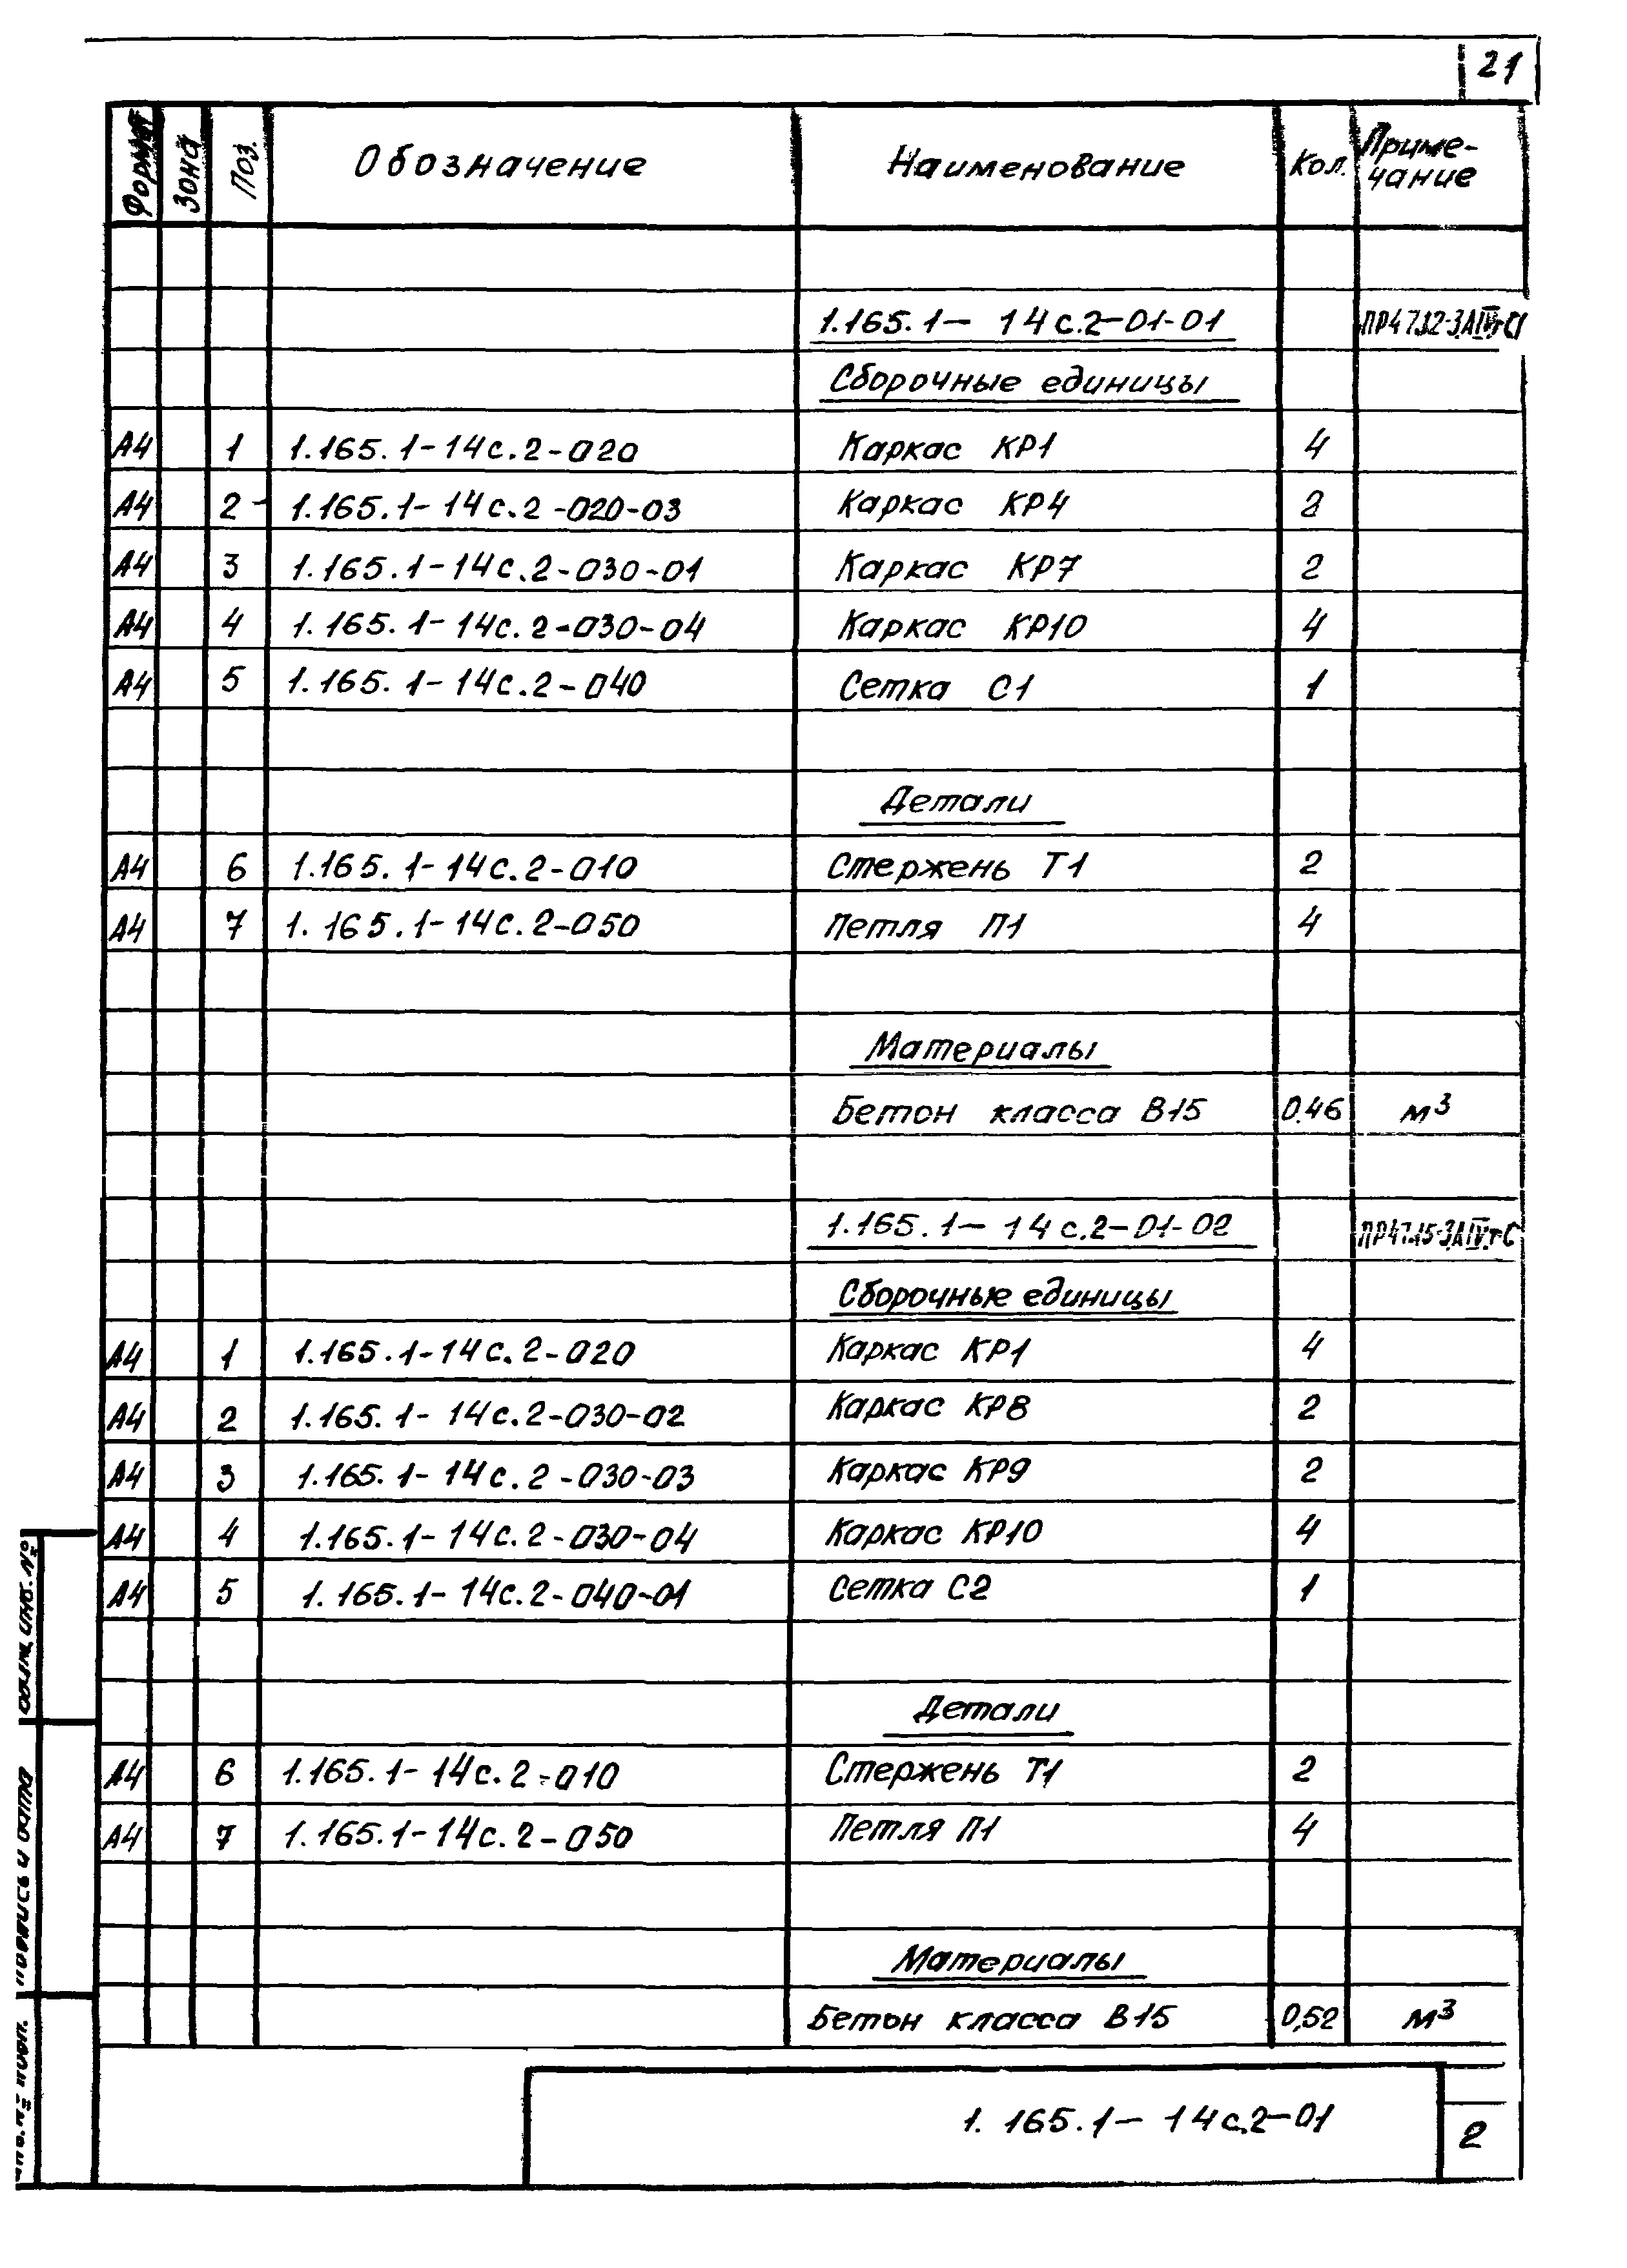 21
Формат Зона Поз. Обозначение Наименование Кол. Приме-
чание
1.165.1- 14с.2-01-01
Сборочные единицы
А4 1 1.165.1-14с.2-020 Каркас КР1 4
А4 2 1.165.1-14с.2-020-03 Каркас КР4 2
А4 3 1.165.1-14с.2-030-01 Каркас КР7 2
А4 4 1.165.1-14с.2-030-04 Каркас КР10 4
А4 5 1.165.1-14с.2-040 Сетка С1 1
Детали
А4 6 1.165.1-14с.2-010 Стержень Т1 2
А4 7 1.165.1-14с.2-050 Петля П1 4
Материалы
Бетон класса В15 0.46 м³
1.165.1- 14с.2-01-02
Сборочные единицы
А4 1 1.165.1-14с.2-020 Каркас КР1 4
А4 2 1.165.1-14с.2-030-02 Каркас КР8 2
А4 3 1.165.1-14с.2-030-03 Каркас КР9 2
А4 4 1.165.1-14с.2-030-04 Каркас КР10 4
А4 5 1.165.1-14с.2-040-01 Сетка С2 1
Детали
А4 6 1.165.1-14с.2-010 Стержень Т1 2
А4 7 1.165.1-14с.2-050 Петля П1 4
Материалы
Бетон класса В15 0,52 м³
инв. №
подпись и дата
подл.
1.165.1- 14с.2-01
2